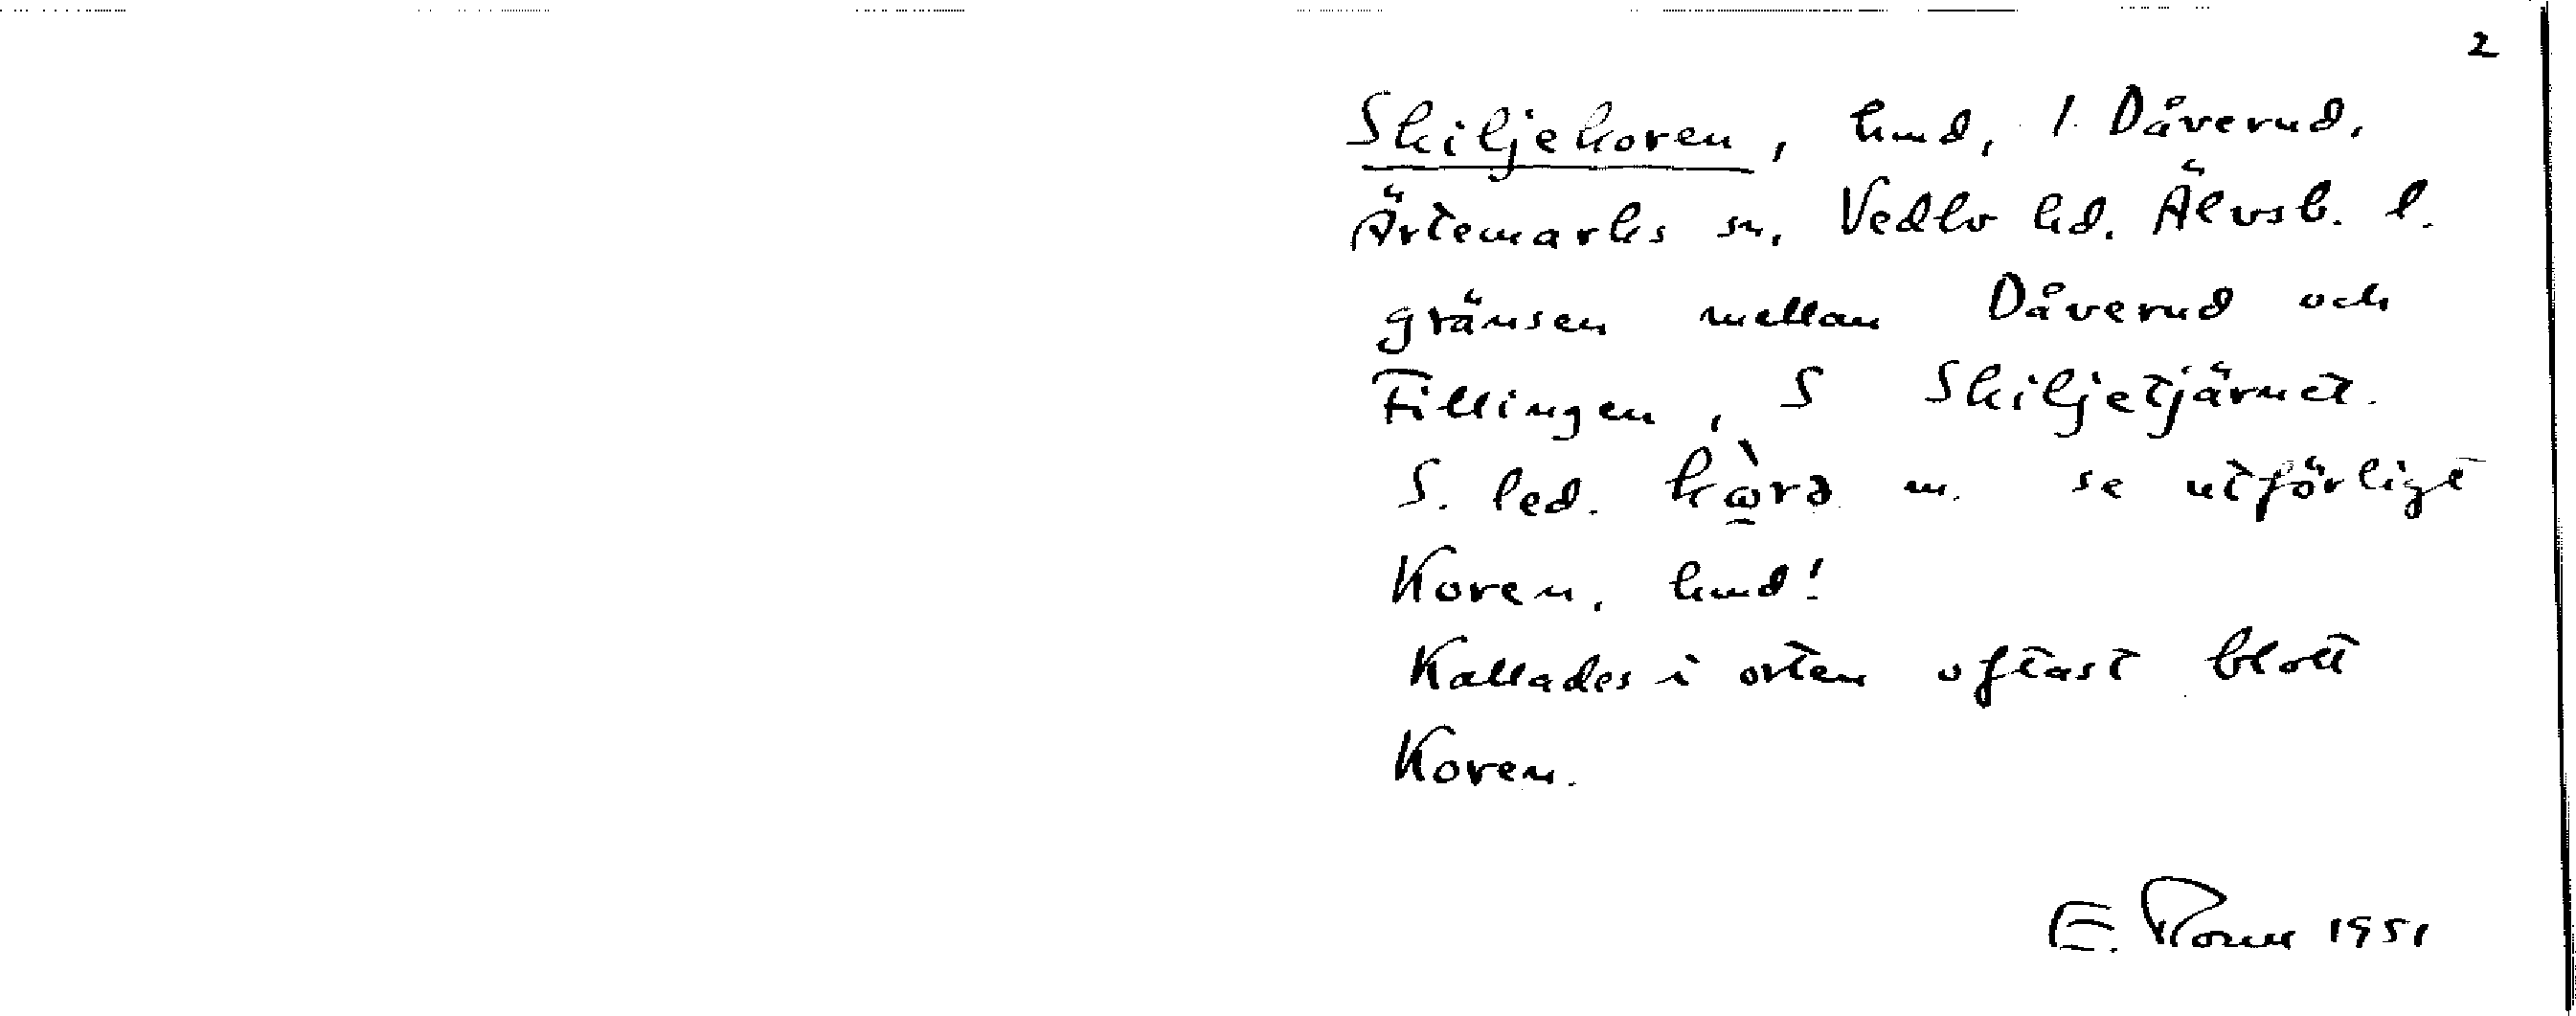 2
Skiljekoren, kmd, 1 Dåverud,
Ärtemarks sn, Vedbo hd. Älvsb. l.
gränsen mellan Dåverud och
Fillingen, S Skiljetjärnet.
S. led. kὼ̱rə m. se utförligt
Koren, kmd!
Kallades i orten oftast blott
Koren.
E. 1951